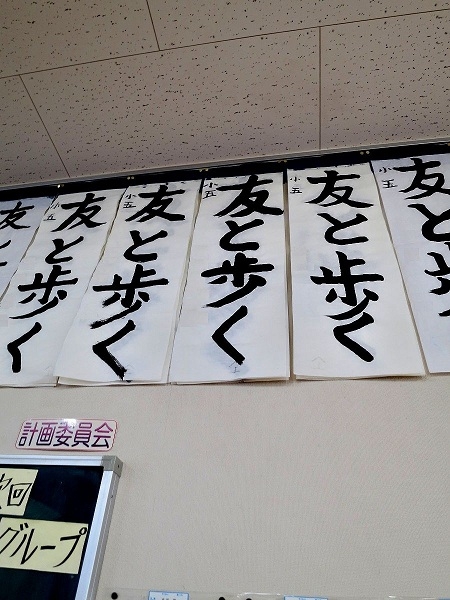 小五
友と歩く
小五
友と歩く
小五
友と歩く
小五
友と歩く
小五
友と歩
友と
計画委員会
次回
グループ